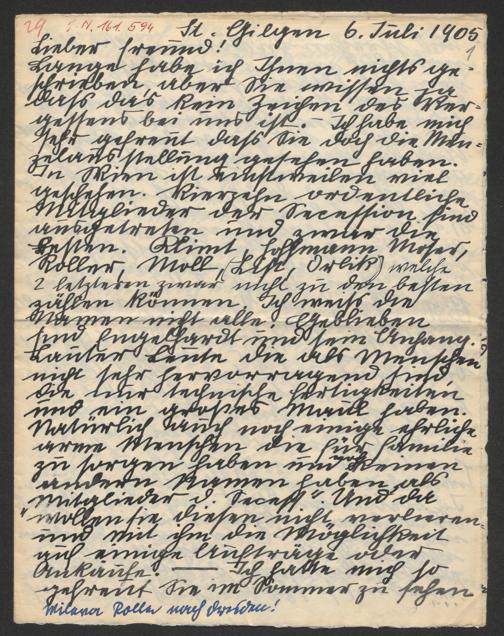 29 I.N. 161.594
St. Gilgen 6. Juli 1905
1
Lieber Freund!
Lange habe ich Ihnen nichts ge-
schrieben, aber Sie wissen ja
dass das kein Zeichen des Ver-
gessens bei uns ist. – Ich habe mich
sehr gefreut dass Sie doch die Men-
zelausstellung gesehen haben.
In Wien ist einstweilen viel
geschehen. Vierzehn ordentliche
Mitglieder der Secession sind
ausgetreten und zwar die
besten. Klimt, Hoffmann Moser,
Roller, Moll, (List, Orlik) welche
2 letzteren zwar nicht zu den besten
zählen können. Ich weiss die
Namen nicht alle. Geblieben
sind Engelhardt und sein Anhang.
Lauter Leute die als Menschen
nicht sehr hervorragend sind,
die nur technische Fertigkeiten
und ein grosses Maul haben.
Natürlich auch noch einige ehrliche
arme Menschen die für Familie
zu sorgen haben und keinen
andern Namen haben als
"Mitglieder d. Secess". Und da
wollen sie diesen nicht verlieren
und mit ihm die Möglichkeit
auf einige Aufträge oder
Ankäufe. — Ich hatte mich so
gefreut Sie im Sommer zu sehen
Mileva Roller nach Dresden!